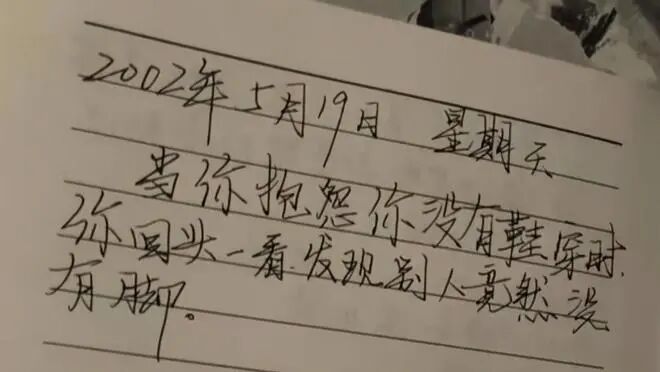 2002年5月19日 星期天
当你抱怨你没有鞋穿时,
你回头一看.发现别人竟然没
有脚。